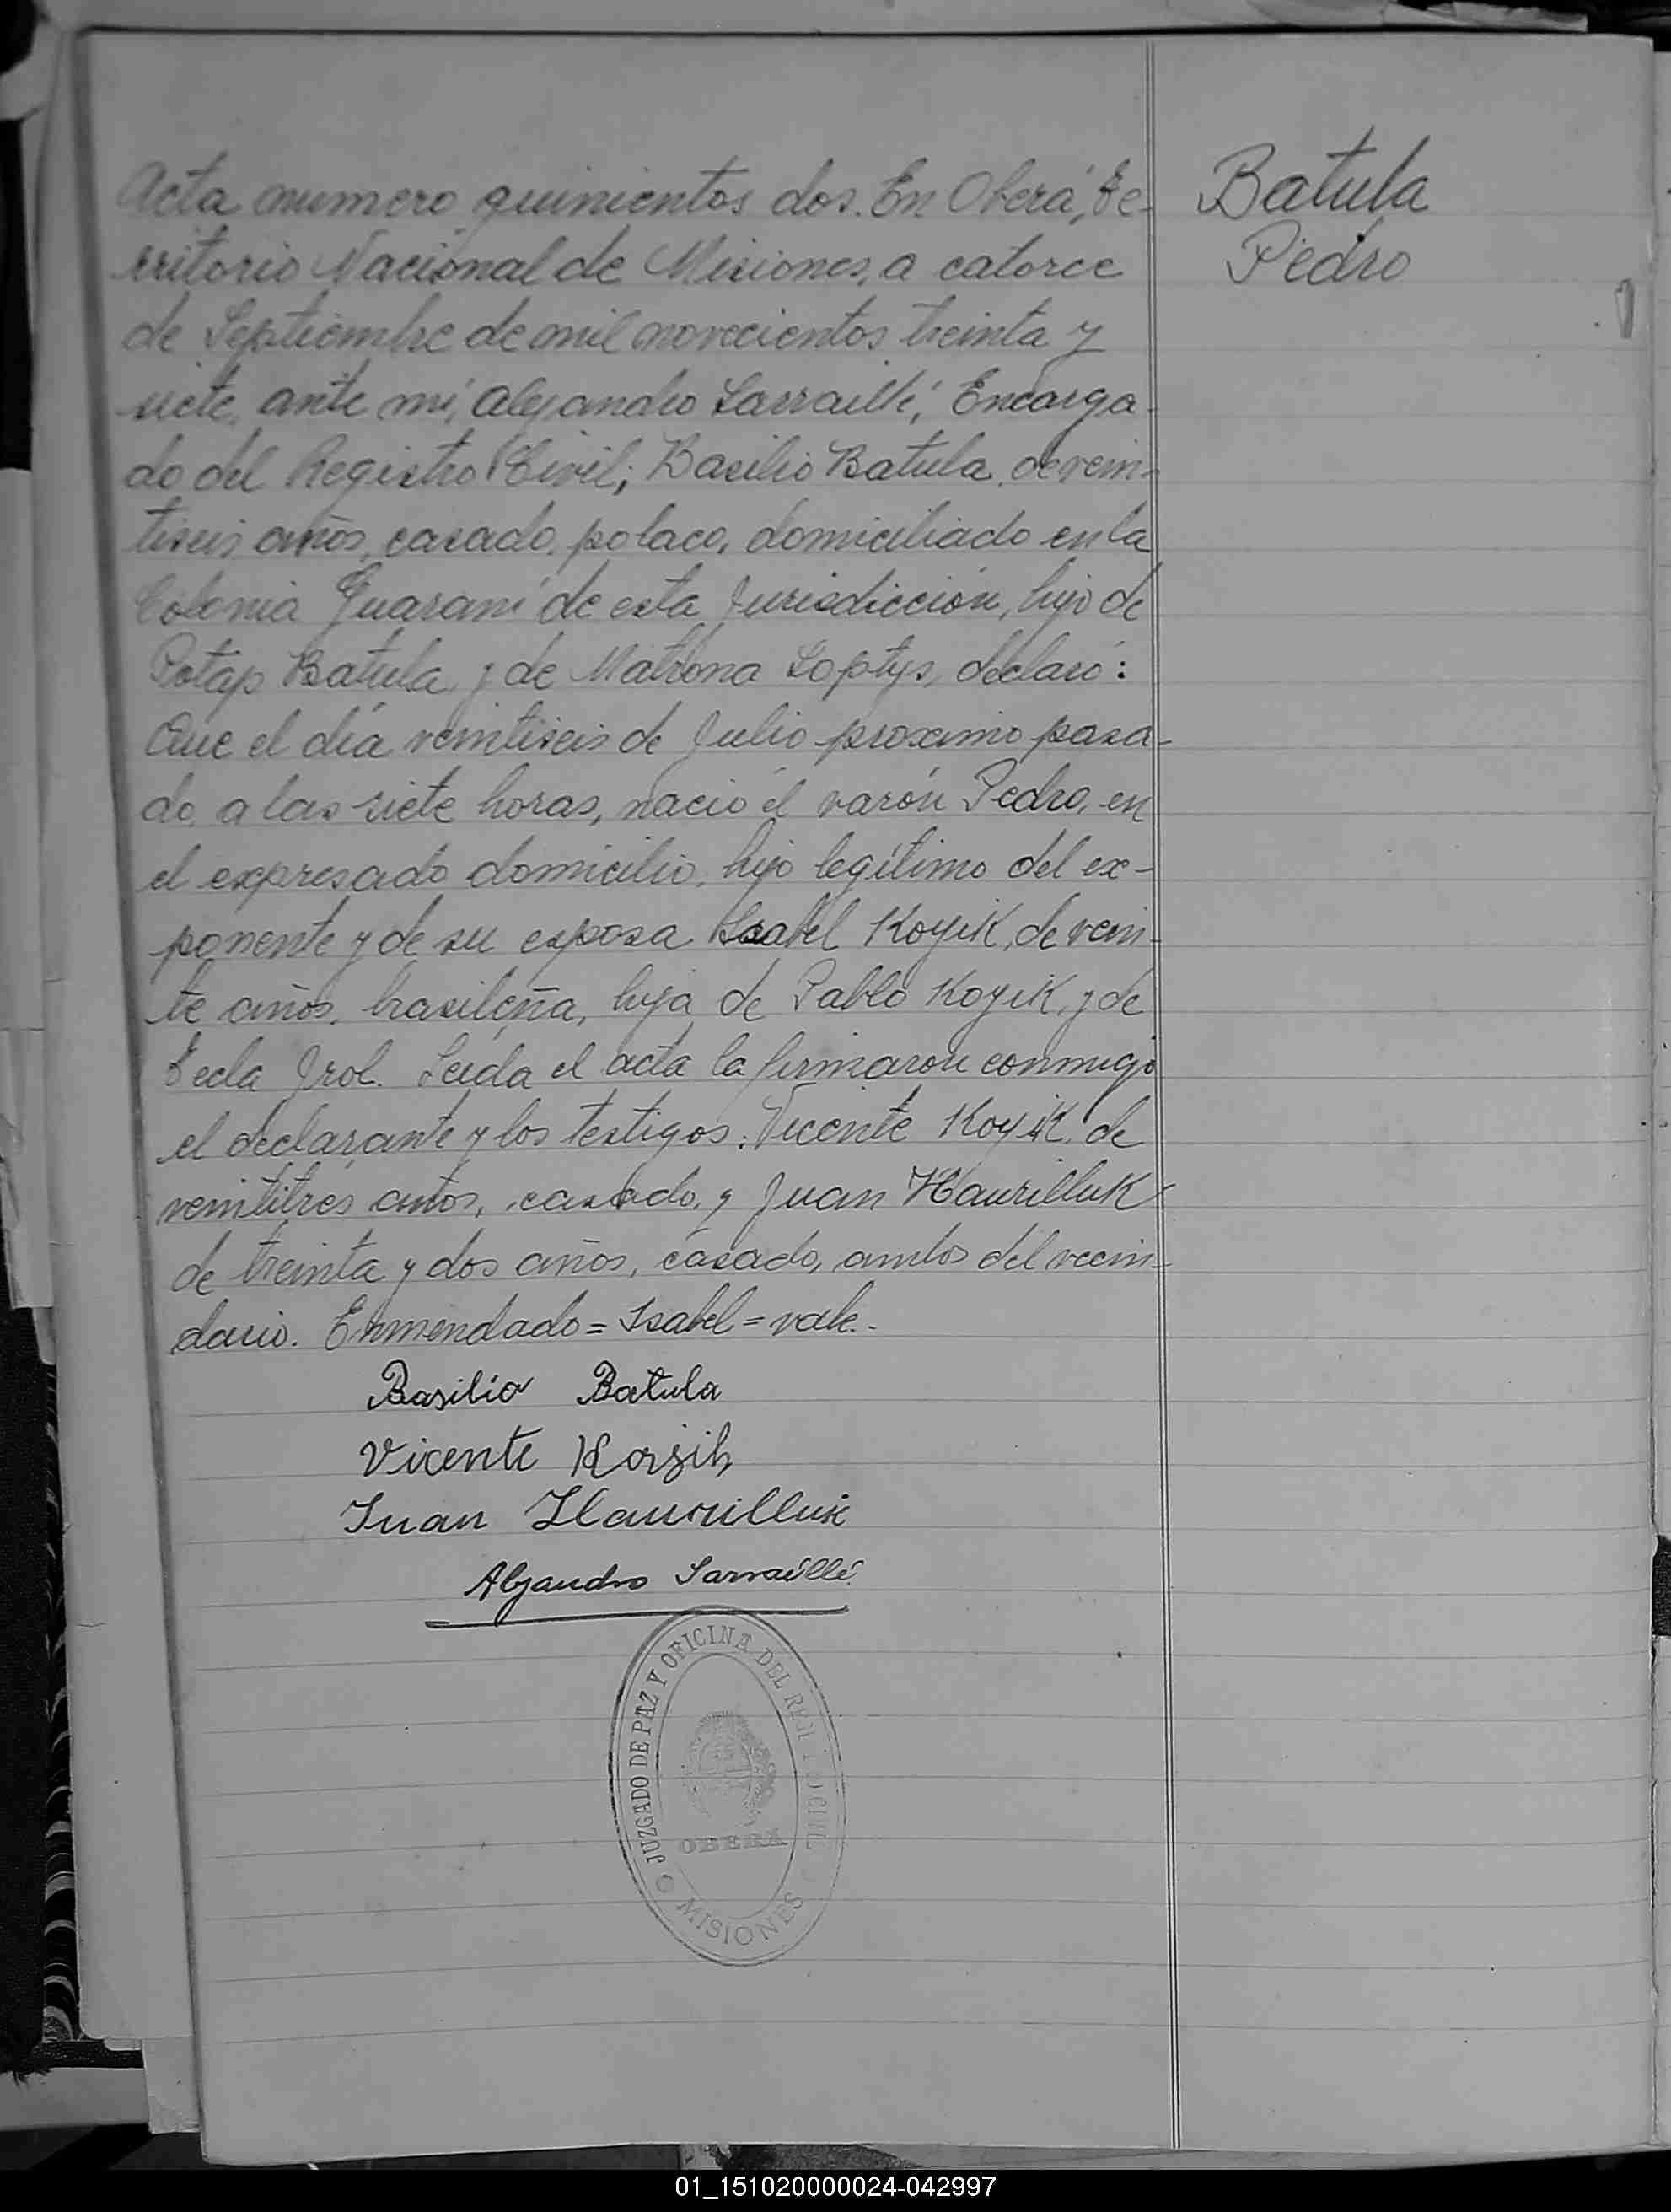 Acta numero quinientos dos. En Oberá, Te-
rritorio Nacional de Misiones, a catorce
de Septiembre de mil novecientos treinta y
siete, ante mí, Alejandro Sarraillé, Encarga-
do del Registro Civil; Basilio Batula, de vein-
tiseis años, casado, polaco, domiciliado en la
Colonia Guaraní de esta Jurisdicción, hijo de
Potap Batula, y de Matrona Loptys, declaró:
Que el día veintiseis de Julio proximo pasa-
do, a las siete horas, nació el varón Pedro, en
el expresado domicilio, hijo legítimo del ex-
ponente y de su esposa Isabel Koyik, de vein-
te años, brasileña, hija de Pablo Koyik, y de
Tecla Jrol. Leída el acta la firmaron conmigo
el declarante y los testigos: Vicente Koyik, de
veintitres años, casado, y Juan Haurilluk
de treinta y dos años, casado, ambos del vecin-
dario. Enmendado = Isabel = vale.-
Basilio Batula
Vicente Korzik
Juan Haurilluk
Alejandro Sarraillé
JUZGADO DE PAZ Y OFICINA DEL REGISTRO CIVIL
OBERA
MISIONES
Batula
Pedro
01_151020000024-042997